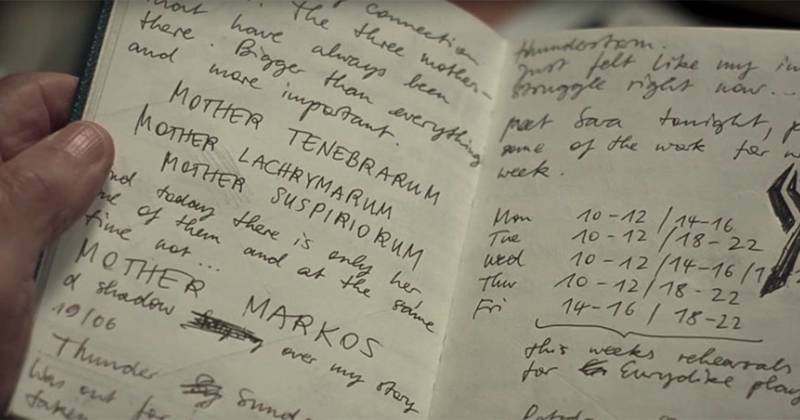 connection
the three mother-
most have always been
there. Bigger than everything
and more important.
MOTHER TENEBRARUM
MOTHER LACHRYMARUM
MOTHER SUSPIRIORUM
and today there is only her
one of them and at the same
time not...
MOTHER MARKOS
a shadow over my story
19/06
Thunder Sund
Was out for
taken
thunderstorm.
just felt like my in
struggle right now...
meet Sara tonight, p
some of the work for n
week.
Mon 10-12 / 14-16
Tue 10-12 / 18-22
Wed 10-12 / 14-16 / 1
Thur 10-12 / 18-22
Fri 14-16 / 18-22
this weeks rehearsals
for Eurydike play